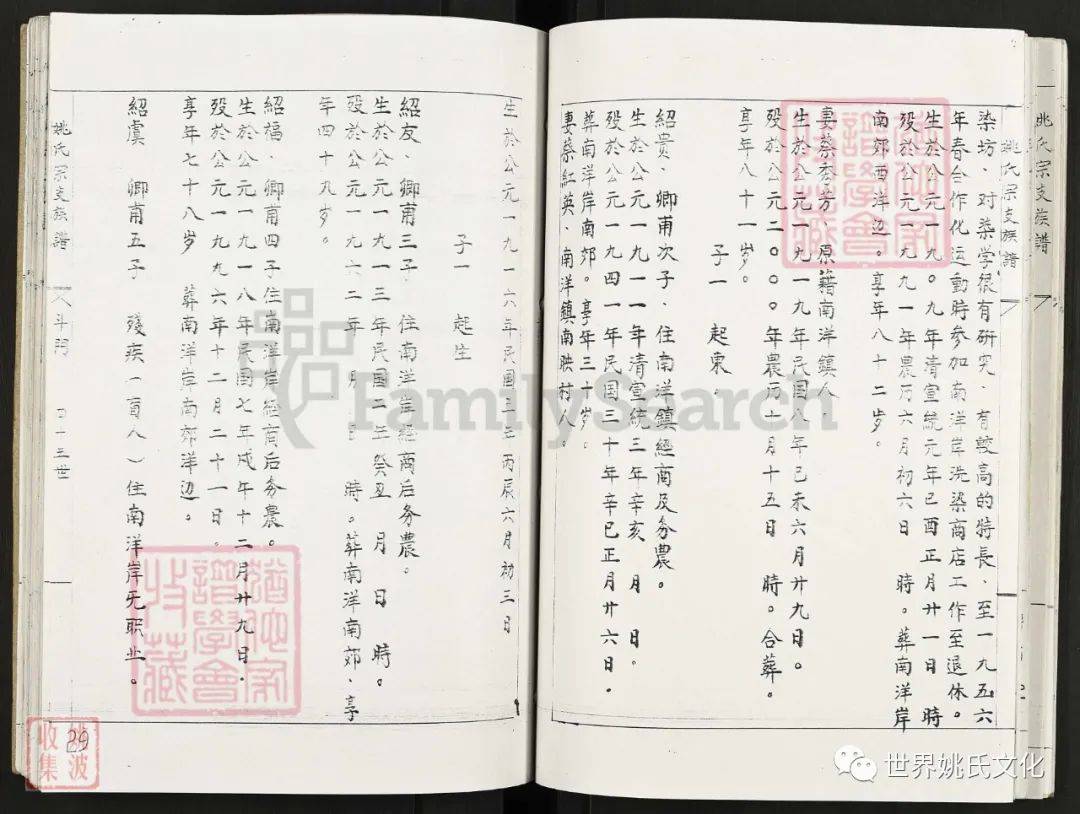 姚氏宗支族譜
姚氏宗支族譜
染坊．对染学很有研究．有較高的特長．至一九五六
年春合作化运動時参加南洋岸洗染商店工作至退休。
生於公元一九0九年清宣統元年己酉正月廿一日　時
殁於公元一九九一年農历六月初六日　時。葬南洋岸
南郊西洋边。享年八十二岁。
妻蔡杏芳　原籍南洋鎮人
生於公元一九一九年民國八年己未六月廿九日。
殁於公元二000年農历十月十五日　時。合葬。
享年八十一岁。
子一　起東．
紹貴．卿甫次子．住南洋鎮經商及务農。
生於公元一九一一年清宣統三年辛亥　月　日．
殁於公元一九四一年民国三十年辛巳正月廿六日．
葬南洋岸南郊。享年三十岁。
妻蔡紅英．南洋鎮南映村人。
生於公元一九一六年民國五年丙辰六月初三日
子一　起生
紹友．卿甫三子　住南洋岸經商后务農。
生於公元一九一三年民國二年癸丑　月　日　時。
殁於公元一九六二年　月　日　時。葬南洋南郊．享
年四十九岁。
紹福．卿甫四子住南洋岸經商后务農。
生於公元一九一八年民国七年戊午十二月廿九日．
殁於公元一九九六年十二月二十一日。
享年七十八岁　葬南洋岸南郊洋边。
紹虞　卿甫五子　残疾（盲人）住南洋岸无职业。
姚氏宗支族譜
斗門
三世
29
姚波
收集
FamilySearch
世界姚氏文化